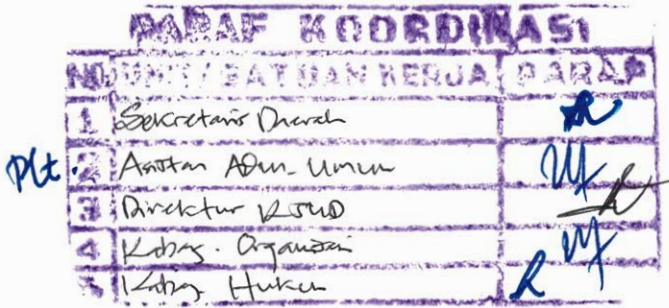 PARAF KOORDINASI
NO UNIT/SATUAN KERJA PARAF
1 Sekretaris Daerah
Plt. 2 Asisten Adm. Umum
3 Direktur RSUD
4 Kabag. Organisasi
5 Kabag Hukum